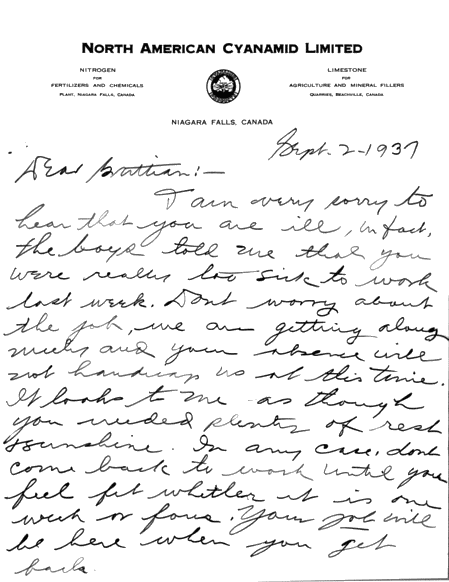 NORTH AMERICAN CYANAMID LIMITED
NITROGEN
FOR
FERTILIZERS AND CHEMICALS
PLANT, NIAGARA FALLS, CANADA
LIMESTONE
FOR
AGRICULTURE AND MINERAL FILLERS
QUARRIES, BEACHVILLE, CANADA
NIAGARA FALLS, CANADA
Sept. 2-1937
Dear :-
I am very sorry to
hear that you are ill, in fact,
the boys told me that you
were really too sick to work
last week. Dont worry about
the job, we are getting along
nicely and your absence will
not handicap us at this time.
It looks to me as though
you needed plenty of rest
& sunshine. In any case, dont
come back to work until you
feel fit whether it is one
week or four. Your job will
be here when you get
back.